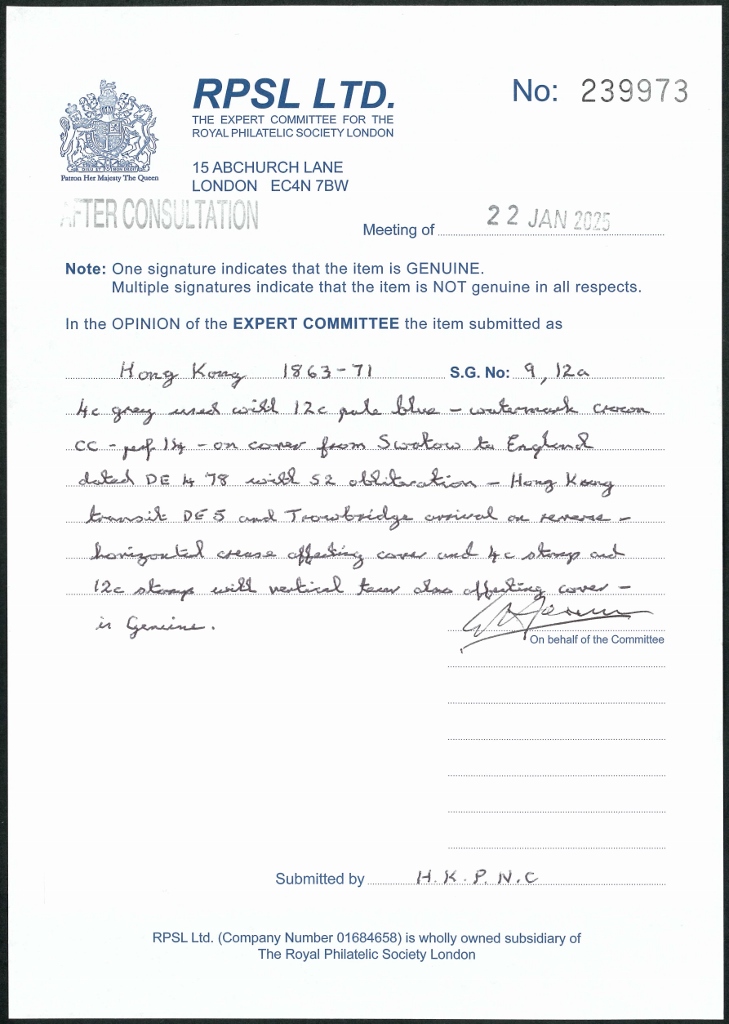 RPSL LTD.
THE EXPERT COMMITTEE FOR THE
ROYAL PHILATELIC SOCIETY LONDON
No: 239973
15 ABCHURCH LANE
LONDON EC4N 7BW
Patron Her Majesty The Queen
AFTER CONSULTATION
Meeting of 22 JAN 2025
Note: One signature indicates that the item is GENUINE.
Multiple signatures indicate that the item is NOT genuine in all respects.
In the OPINION of the EXPERT COMMITTEE the item submitted as
Hong Kong 1863-71 S.G. No: 9, 12a
4c grey used with 12c pale blue - watermark crown
CC - perf 14 - on cover from Swatow to England
dated DE 4 78 with S2 obliteration - Hong Kong
transit DE 5 and Trowbridge arrival on reverse -
horizontal crease affecting cover and 4c stamp and
12c stamp with vertical tear also affecting cover -
is Genuine.
On behalf of the Committee
Submitted by H.K.P.N.C
RPSL Ltd. (Company Number 01684658) is wholly owned subsidiary of
The Royal Philatelic Society London